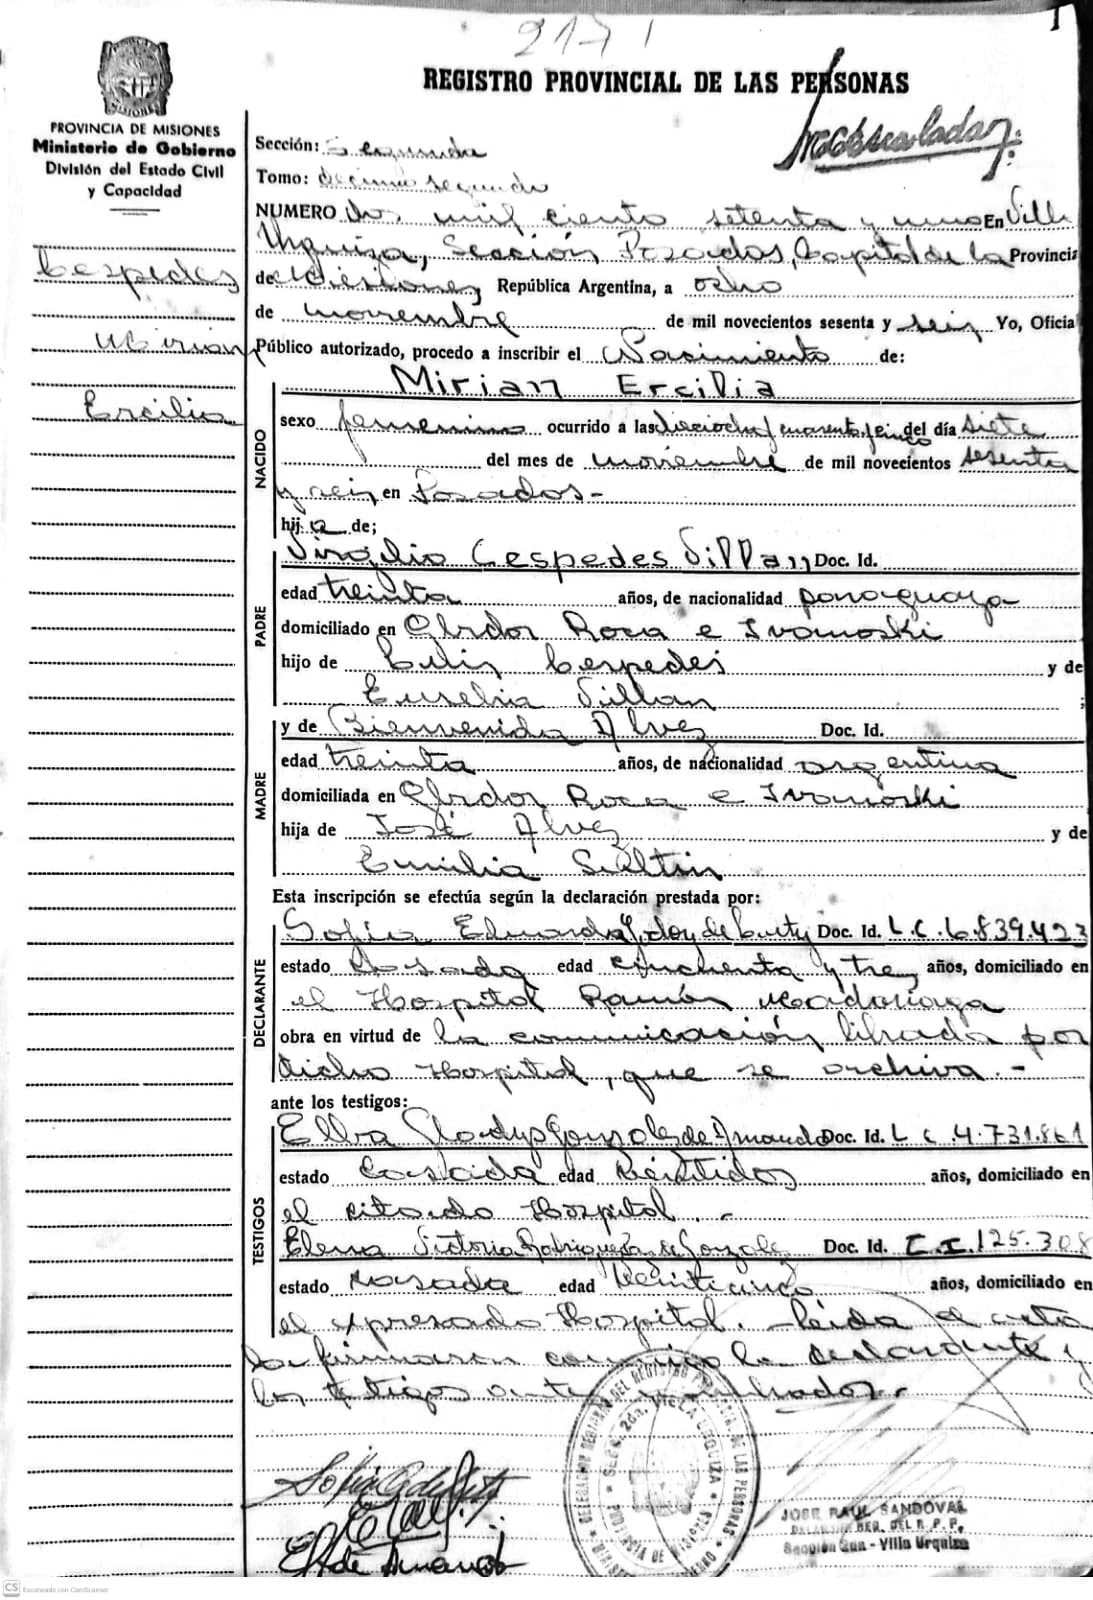 2171
REGISTRO PROVINCIAL DE LAS PERSONAS
PROVINCIA DE MISIONES
Ministerio de Gobierno
División del Estado Civil
y Capacidad
Sección: Segunda
Tomo: decimo segundo
NUMERO dos mil ciento setenta y uno En Villa
Urquiza, Sección Posadas, Capital de la Provincia
de Misiones República Argentina, a ocho
de noviembre de mil novecientos sesenta y seis Yo, Oficial
Público autorizado, procedo a inscribir el Nacimiento de:
Cespedes
Mirian
Ercilia
NACIDO
Mirian Ercilia
sexo femenino ocurrido a las dieciocho y cuarenta y cinco del día siete
del mes de noviembre de mil novecientos sesenta
y seis en Posadas-
hij a de;
PADRE
Virgilio Cespedes Villan Doc. Id.
edad treinta años, de nacionalidad paraguaya
domiciliado en Roca e Ivanoski
hijo de Luis Cespedes y de
Eusebia Villan ;
MADRE
y de Bienvenida Alvez Doc. Id.
edad treinta años, de nacionalidad argentina
domiciliada en Roca e Ivanoski
hija de José Alvez y de
Emilia
Esta inscripción se efectúa según la declaración prestada por:
DECLARANTE
Sofia Eduarda Godoy de Doc. Id. L.C. 6.839.423
estado casada edad cincuenta y tres años, domiciliado en
el Hospital Ramón Madariaga
obra en virtud de la comunicación librada por
dicho Hospital, que se archiva.-
ante los testigos:
TESTIGOS
Elba Gladys Gonzalez de Amando Doc. Id. L C 4.731.861
estado casada edad veintidos años, domiciliado en
el citado Hospital.-
Elena Victoria de Gonzalez Doc. Id. C.I. 125.308
estado casada edad veinticinco años, domiciliado en
el expresado Hospital.- Leida el acta
la firmaron conmigo la declarante y
los testigos ante nombrados.-
DELEGACION REGIONAL DEL REGISTRO PROVINCIAL DE LAS PERSONAS
SECC. 2da. VILLA URQUIZA
PROVINCIA DE MISIONES
JOSE RAUL SANDOVAL
DEL R. P. P.
Sección 2da - Villa Urquiza
CS Escaneado con CamScanner